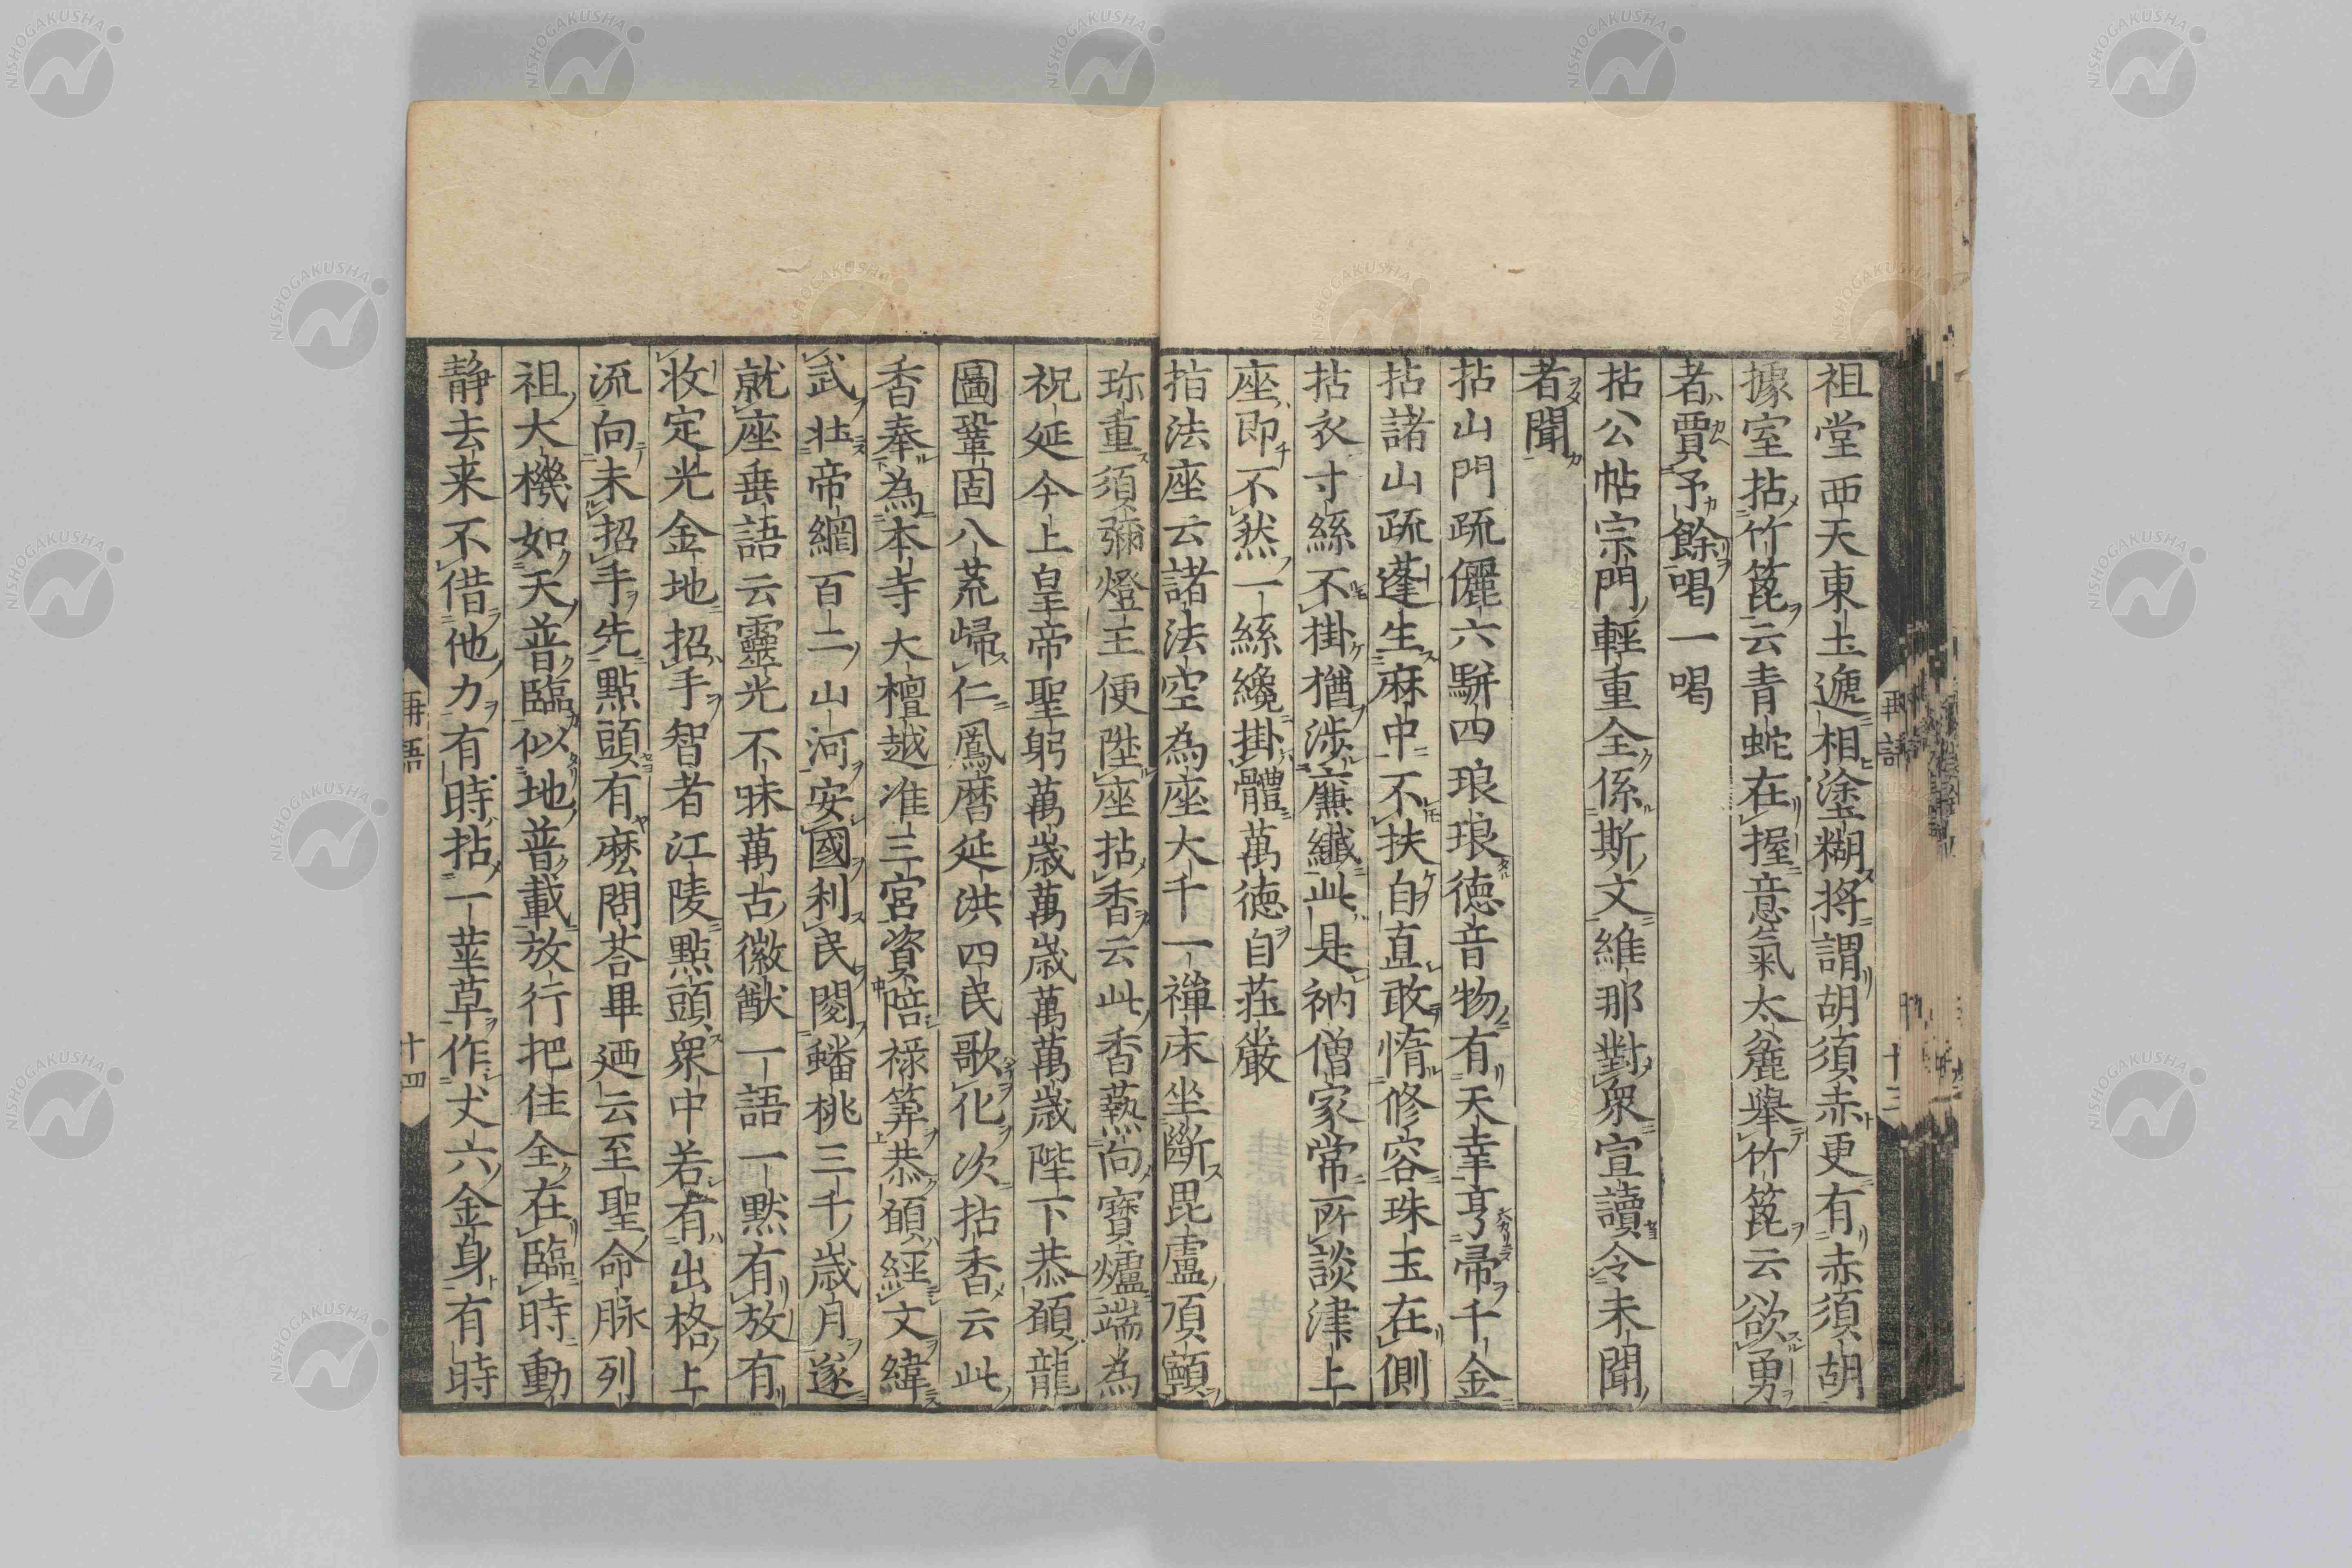 祖堂西天東土遞相塗糊將謂胡須赤更有赤須胡
據室拈竹箆云青蛇在握意氣太麁舉竹箆云欲勇
者賈予餘喝一喝
拈公帖宗門輕重全係斯文維那對衆宣讀令未聞
者聞
拈山門疏儷六駢四琅琅德音物有天幸亨帚千金
拈諸山疏蓬生麻中不扶自直敢惰修容珠玉在側
拈衣寸絲不掛猶涉廉纖此是衲僧家常所談津上
座即不然一絲纔掛體萬德自莊嚴
指法座云諸法空為座大千一禪床坐斷毘盧頂顙
珎重須彌燈王便陞座拈香云此香爇向寶爐端為
祝延今上皇帝聖躬萬歲萬歲萬萬歲陛下恭願龍
圖鞏固八荒歸仁鳳曆延洪四民歌化次拈香云此
香奉為本寺大檀越准三宮資陪祿筭恭願經文緯
武壯帝網百二山河安國利民閱蟠桃三千歲月遂
就座垂語云靈光不昧萬古徽猷一語一默有放有
收定光金地招手智者江陵點頭衆中若有出格上
流向未招手先點頭有麽問荅畢廼云至聖命脉列
祖大機如天普臨似地普載放行把住全在臨時動
靜去来不借他力有時拈一莖草作丈六金身有時
再語
十四
再語
十三
NISHOGAKUSHA